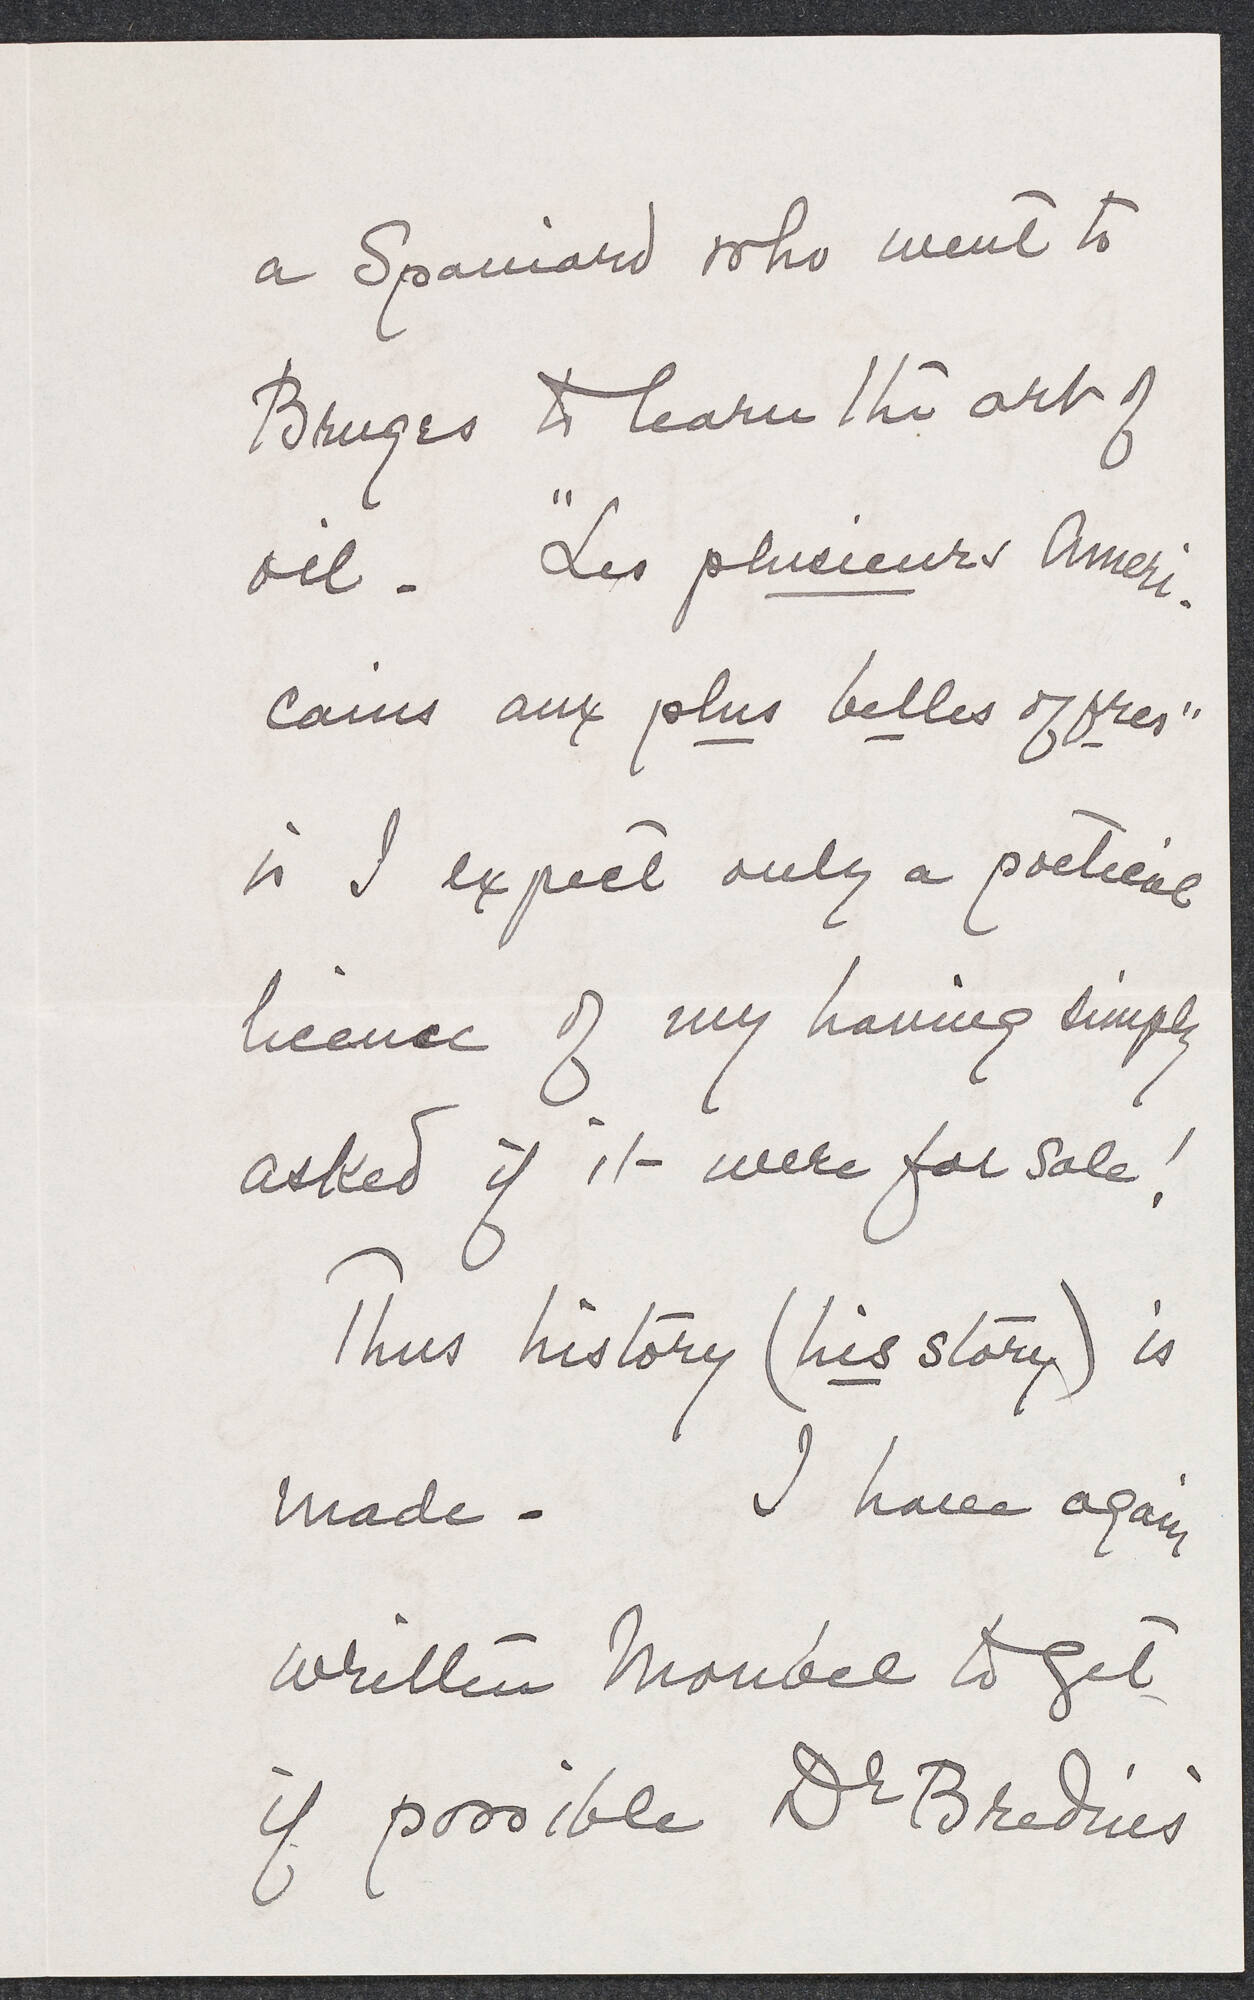 a Spaniard who went to
Bruges to learn the art of
oil - "Les plusieurs Ameri-
cains aux plus belles offres"
is I expect only a poetical
licence of my having simply
asked if it were for sale!
Thus history (his story) is
made - I have again
written Monbel to get
if possible Dr Bredius